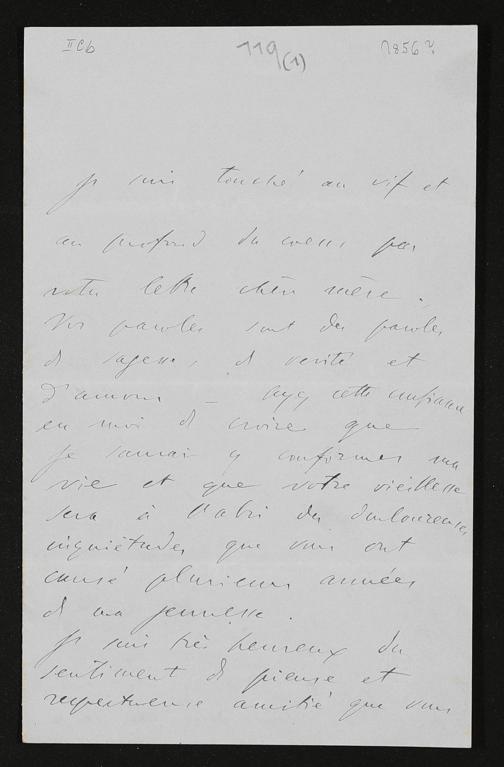 II Cb 119 (1) 1856?
Je suis touché au vif et
au profond du coeur par
votre lettre chère mère.
Vos paroles sont des paroles
de sagesse, de verité et
d'amour – Ayez cette confiance
en moi de croire que
je saurai y conformer ma
vie et que votre vieillesse
sera à l'abri des douloureuses
inquiétudes que vous ont
causé plusieurs années
de ma jeunesse.
Je suis très heureux du
sentiment de pieuse et
respectueuse amitié que vous